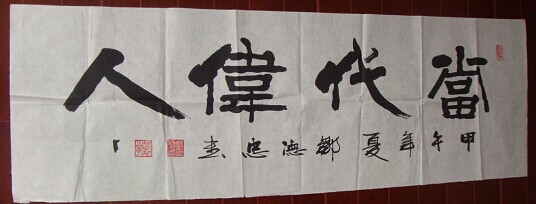 當代偉人
甲午年夏鄭德忠書